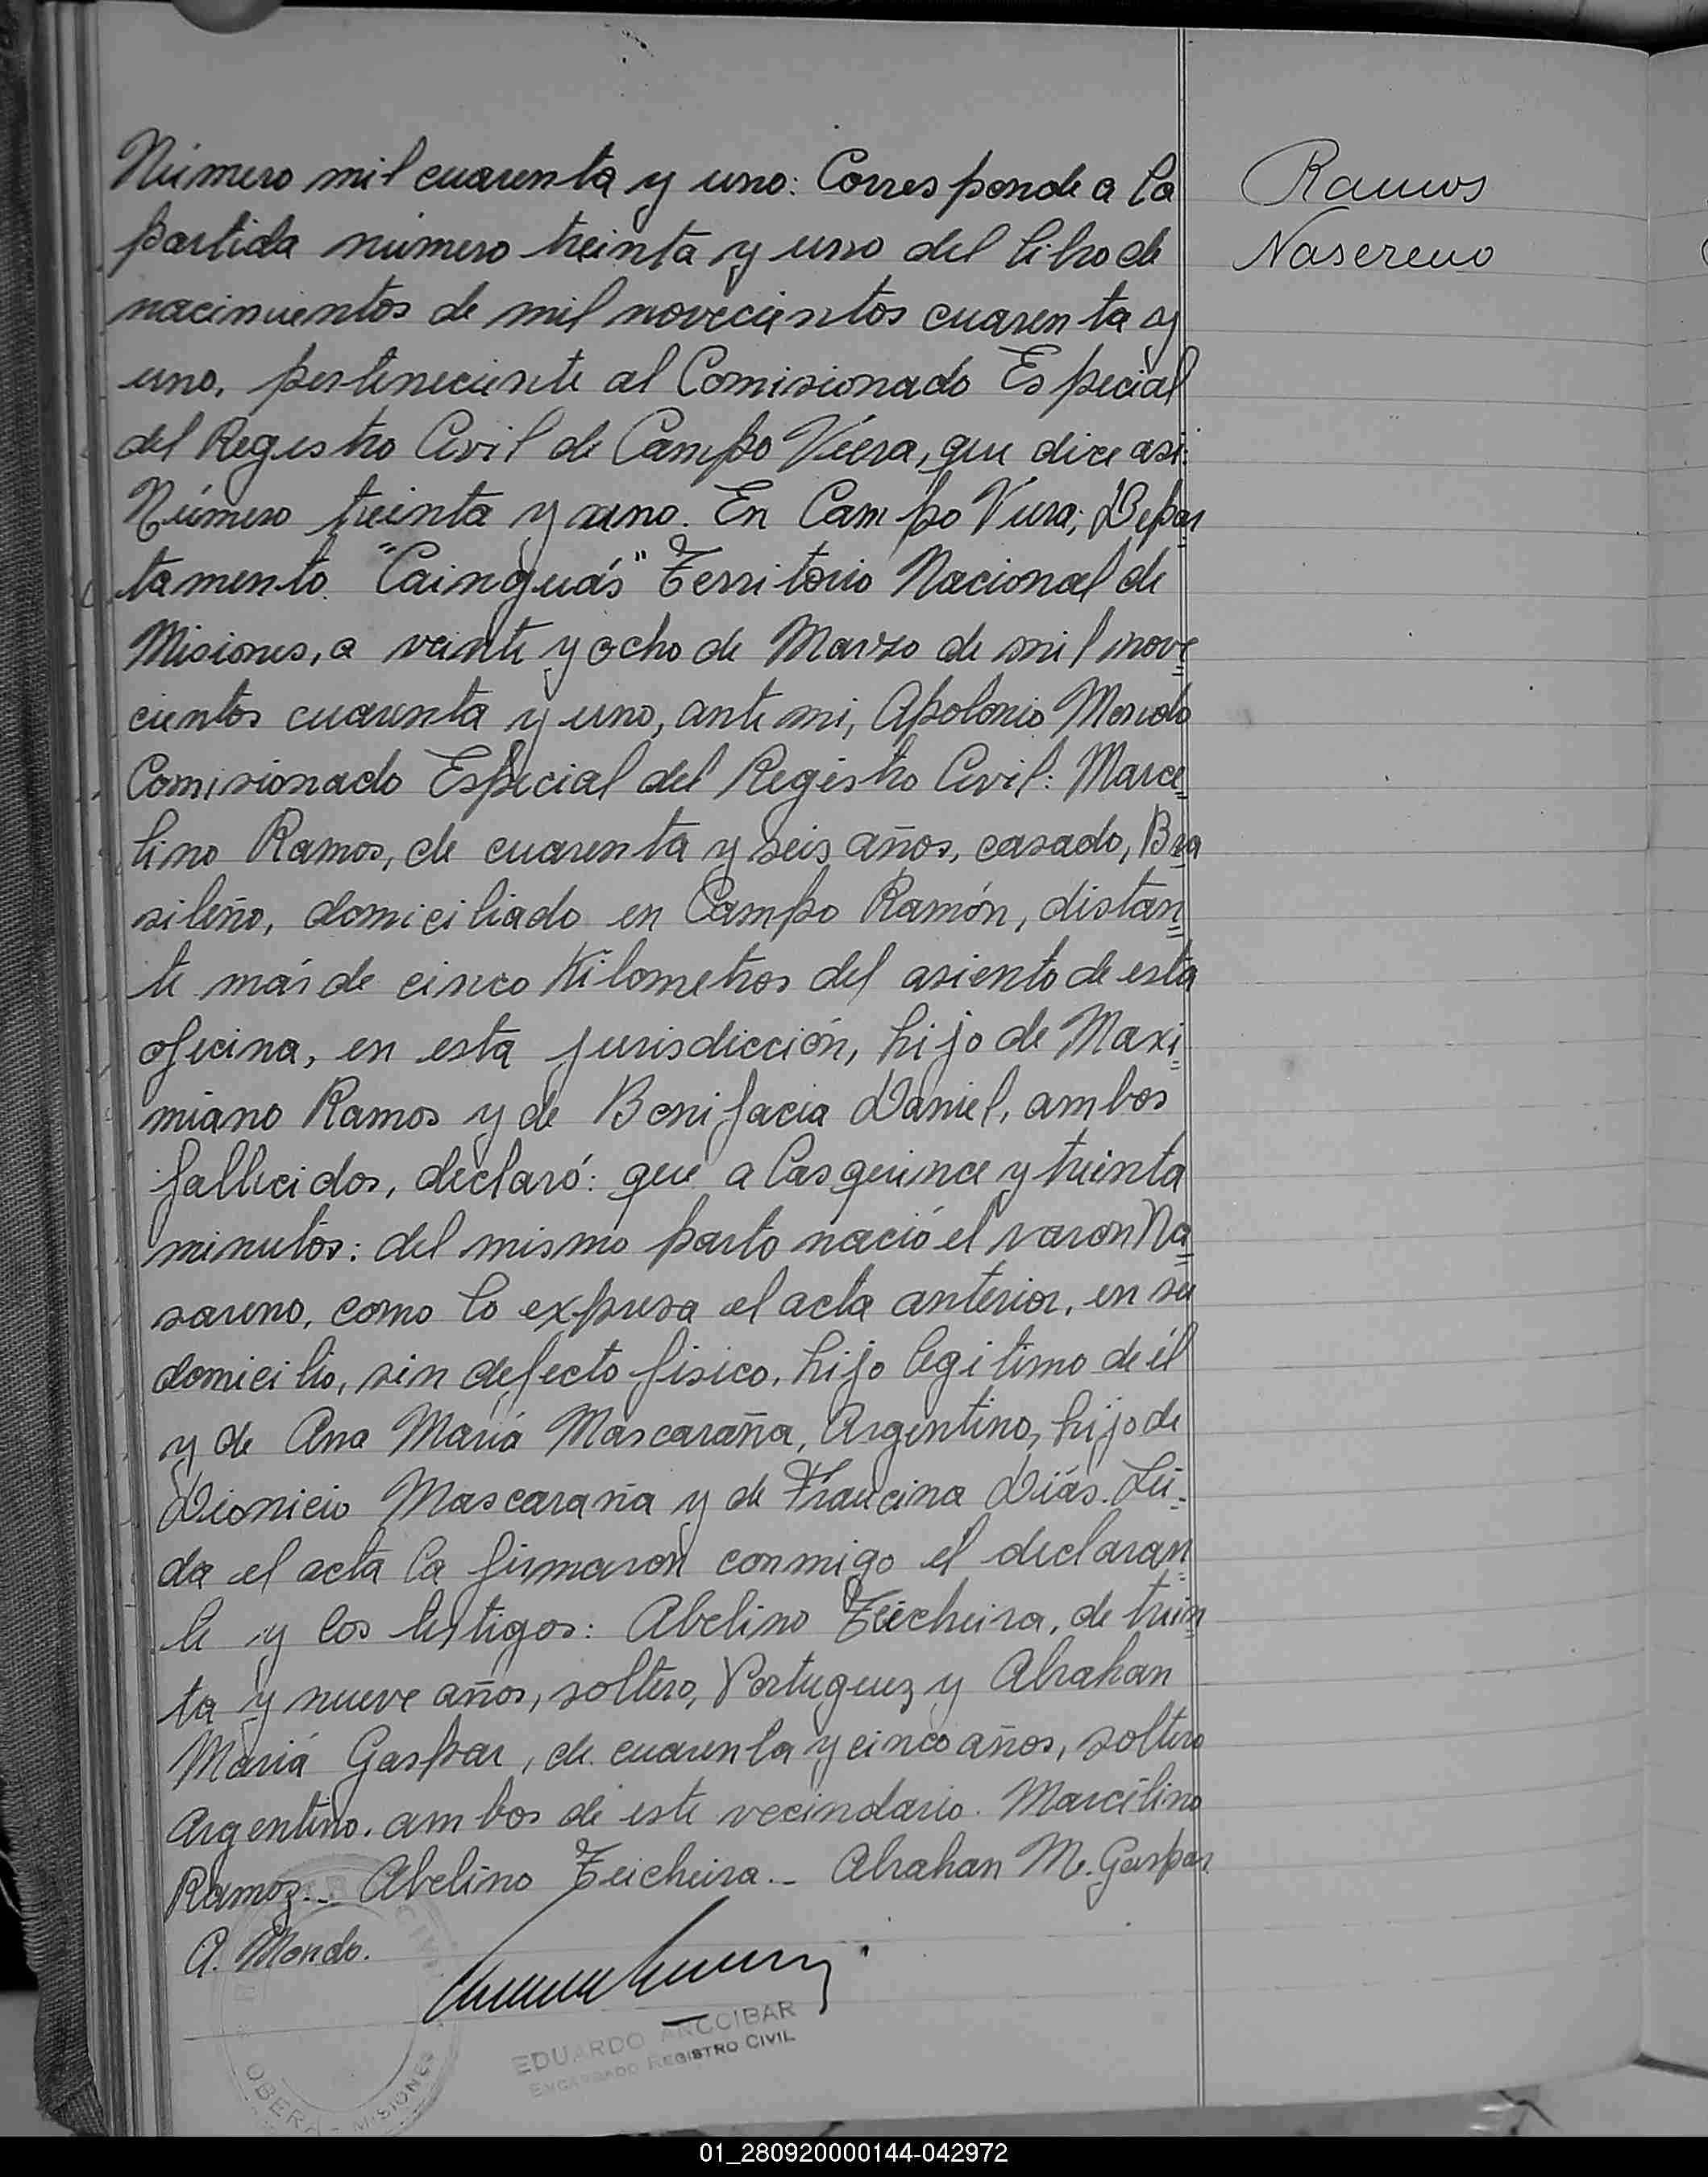 Número mil cuarenta y uno: Corresponde a la
partida número treinta y uno del libro de
nacimientos de mil novecientos cuarenta y
uno, perteneciente al Comisionado Especial
del Registro Civil de Campo Viera, que dice así:
Número treinta y uno. En Campo Viera; Depar
tamento "Cainguás" Territorio Nacional de
Misiones, a veinte y ocho de Marzo de mil nove
cientos cuarenta y uno, ante mi, Apolonio
Comisionado Especial del Registro Civil: Marce
lino Ramos, de cuarenta y seis años, casado, Bra
sileño, domiciliado en Campo Ramón, distan
te más de cinco Kilometros del asiento de esta
oficina, en esta jurisdicción, hijo de Maxi
miano Ramos y de Bonifacia Daniel, ambos
fallecidos, declaró: que a las quince y treinta
minutos: del mismo parto nació el varon Na
sareno, como lo expresa el acta anterior, en su
domicilio, sin defecto fisico, hijo legitimo de él
y de Ana Maria Mascaraña, Argentino, hijo de
Dionicio Mascaraña y de Francina Diás. Leí
da el acta la firmaron conmigo el declaran
te y los testigos: Abelino Teicheira, de trein
ta y nueve años, soltero, Portuguez y Abrahan
Maria Gaspar, de cuarenta y cinco años, soltero
Argentino. ambos de este vecindario. Marcelino
Ramoz.- Abelino Teicheira.- Abrahan M. Gaspar.
A. Mondo.
EDUARDO ARCCIBAR
ENCARGADO REGISTRO CIVIL
OBERA - MISIONES
Ramos
Nasereno
01_280920000144-042972